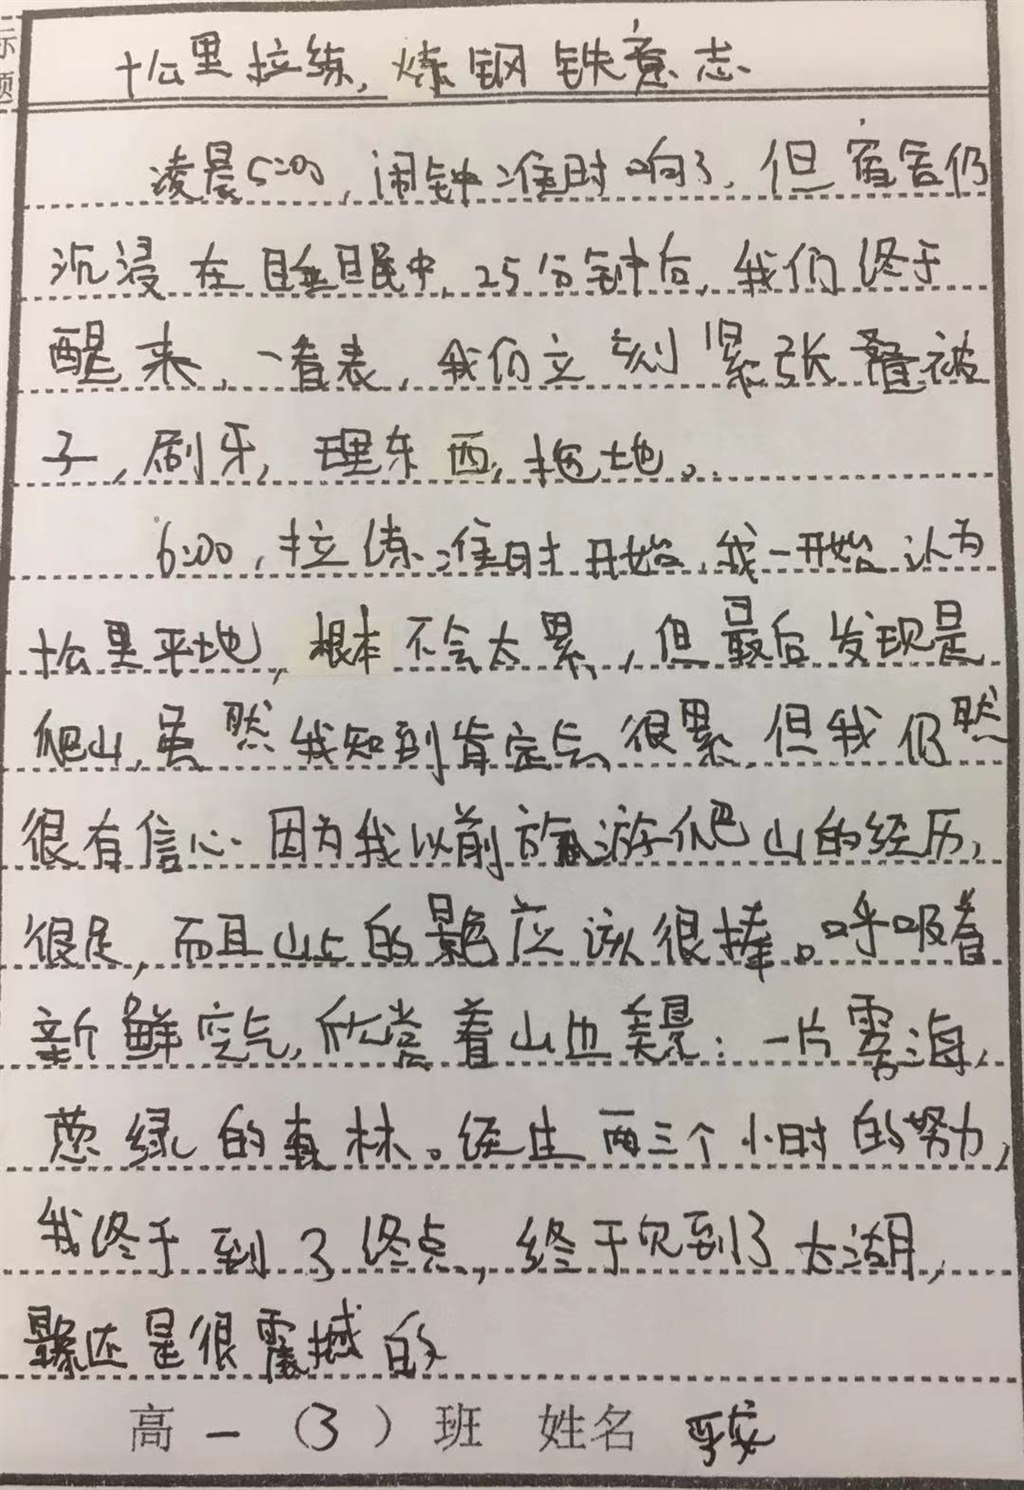 标题
十公里拉练,炼钢铁意志
凌晨5:00,闹钟准时响了,但宿舍仍
沉浸在睡眠中,25分钟后,我们终于
醒来,一看表,我们立刻紧张叠被
子,刷牙,理东西,拖地。
6:00,拉练准时开始,我一开始认为
十公里平地,根本不会太累,但最后发现是
爬山,虽然我知到肯定会很累,但我仍然
很有信心.因为我以前旅游爬山的经历,
很足,而且山上的景色应该很棒。呼吸着
新鲜空气,欣赏着山也美景:一片雾海,
葱绿的森林。经过两三个小时的努力,
我终于到了终点,终于见到了太湖,
景象还是很震撼的
高一(3)班 姓名